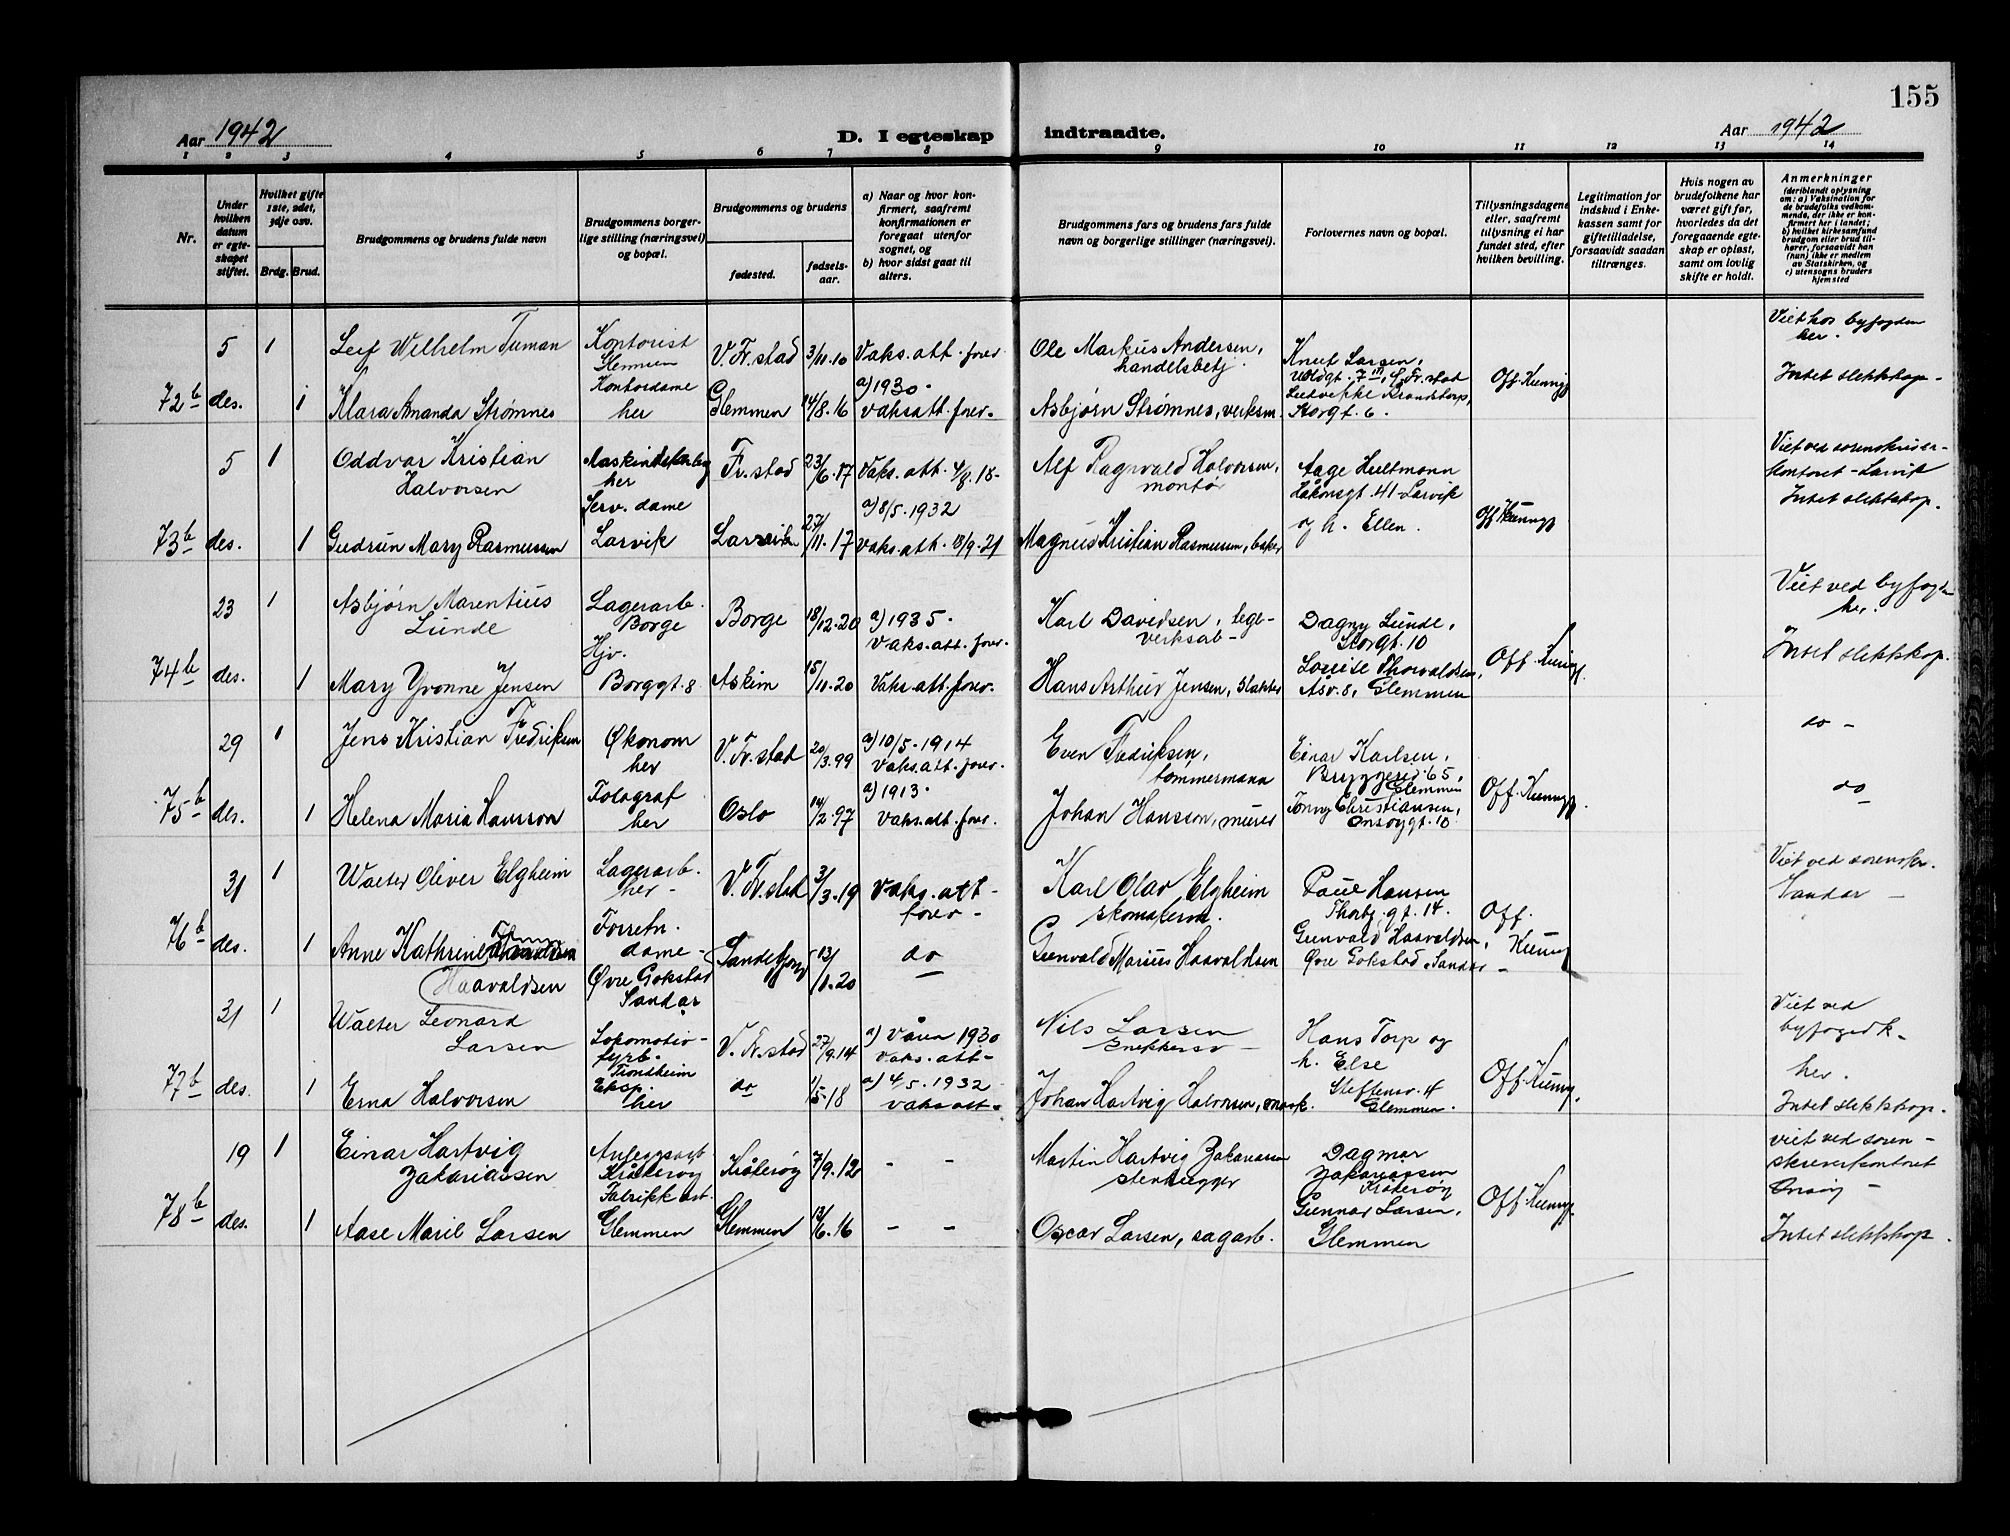 155
Aar 1942
D. I egteskap indtraadte.
Aar 1942
1 2 3 4 5 6 7 8 9 10 11 12 13 14
Nr.
Under hvilken datum er egteskapet stiftet.
Hvilket gifte 1ste, 2det, 3dje osv.
Brdg. Brud.
Brudgommens og brudens fulde navn
Brudgommens borgerlige stilling (næringsvei) og bopæl.
Brudgommens og brudens
fødested.
fødselsaar.
a) Naar og hvor konfirmert, saafremt konfirmationen er foregaat utenfor sognet, og
b) hvor sidst gaat til alters.
Brudgommens fars og brudens fars fulde navn og borgerlige stillinger (næringsvei).
Forlovernes navn og bopæl.
Tillysningsdagene eller, saafremt tillysning ei har fundet sted, efter hvilken bevilling.
Legitimation for indskud i Enkekassen samt for giftetilladelse, forsaavidt saadan tiltrænges.
Hvis nogen av brudefolkene har været gift før, hvorledes da det foregaaende egteskap er opløst, samt om lovlig skifte er holdt.
Anmerkninger (deriblandt oplysning om: a) Vaksination for de brudefolks vedkommende, der ikke er konfirmert her i landet; b) hvilket kirkesamfund brudgom eller brud tilhører, forsaavidt han (hun) ikke er medlem av Statskirken, og c) utensogns bruders hjemsted
72b
5 1 Leif Wilhelm Tuman Kontorist Glemmen V. Fr.stad 3/11.10 Vaks.att. forev. Ole Markus Andersen, handelsbetj. Knut Larsen, Off. Kunng. Viet hos byfogden her.
des. 1 Klara Amanda Strømnes Kontordame her Glemmen 14/8.16 a) 1930. Vaks att. forev. Asbjørn Strømnes, verksm. Storgt. 6. Intet slektskap
73b
5 1 Oddvar Kristian Halvorsen her Fr.stad 23/6.17 Vaks. att. 4/8.18 Alf Ragnvald Halvorsen, montør Aage Hultmann Håkonsgt. 41 Larvik og h. Ellen. Off Kunng. Viet ved sorenskriverkontoret - Larvik
des. 1 Gudrun Mary Rasmussen Serv. dame Larvik Larvik 27/11.17 a) 8/5.1932 Vaks.att. 18/9.21 Magnus Kristian Rasmussen, baker Intet slektskap.
74b
23 1 Asbjørn Marentius Lunde Lagerarb. Borge Borge 18/12.20 a) 1935. Vaks.att. forev. Karl Davidsen, teglverksarb- Dagny Lunde, Storgt. 10 Off. Kunng. Viet ved byfogden her.
des. 1 Mary Yvonne Jensen Hjv. Borggt. 8 Askim 15/11.20 Vaks.att.forev. Hans Arthur Jensen, slakter Louise Thorvaldsen, Åsv. 8, Glemmen Intet slektskap.
75b
29 1 Jens Kristian Fredriksen Økonom her V. Fr.stad 20/3.99 a) 10/5.1914 Vaks.att. forev. Even Fredriksen, tømmermann Einar Karlsen, Bryggerid. 65, Glemmen Off. Kunng. do -
des. 1 Helena Maria Hansson Fotograf her Oslo 14/2.97 a) 1913. Vaks.att. forev. Johan Hansson, murer Tonny Christiansen, Onsøygt. 10 do
76b
31 1 Walter Oliver Elgheim Lagerarb. her - V. Fr.stad 3/3.19 Vaks. att- forev - Karl Olav Elgheim skomakerm. Paul Hansen Thorbj. gt. 14. Off. Kunng Viet ved sorenskr. Sandar -
des. 1 Anne Kathrine Haavaldsen Forretn. dame - Øvre Gokstad Sandar Sandefjord 13/1.20 do Gunvald Marius Haavaldsen Gunvald Haavaldsen, Øvre Gokstad, Sandar -
77b
31 1 Walter Leonard Larsen Lokomotivfyrb. Trondheim V. Fr.stad 27/9.14 a) Våren 1930 Vaks.att- Nils Larsen snekkersv - Hans Torp og h. Else Off. Kunng. Viet ved byfogedk- her.
des. 1 Erna Halvorsen Eksp. her do 1/5.18 a) 4/5.1932 vaks att- Johan Hartvig Halvorsen, mask. Steffensv. 4 Glemmen. Intet slektskap.
78b
19 1 Einar Hartvig Zakariassen Anleggsarb Kråkerøy Kråkerøy 7/9.12 - - Martin Hartvig Zakariassen stenhugger Dagmar Zakariassen Kråkerøy Off. Kunng. viet ved sorenskriverkontoret Onsøy -
des. 1 Aase Maril Larsen Fabrikk arb. Glemmen Glemmen 12/6.16 - - Oscar Larsen, sagarb. Gunnar Larsen, Glemmen Intet slektskap.